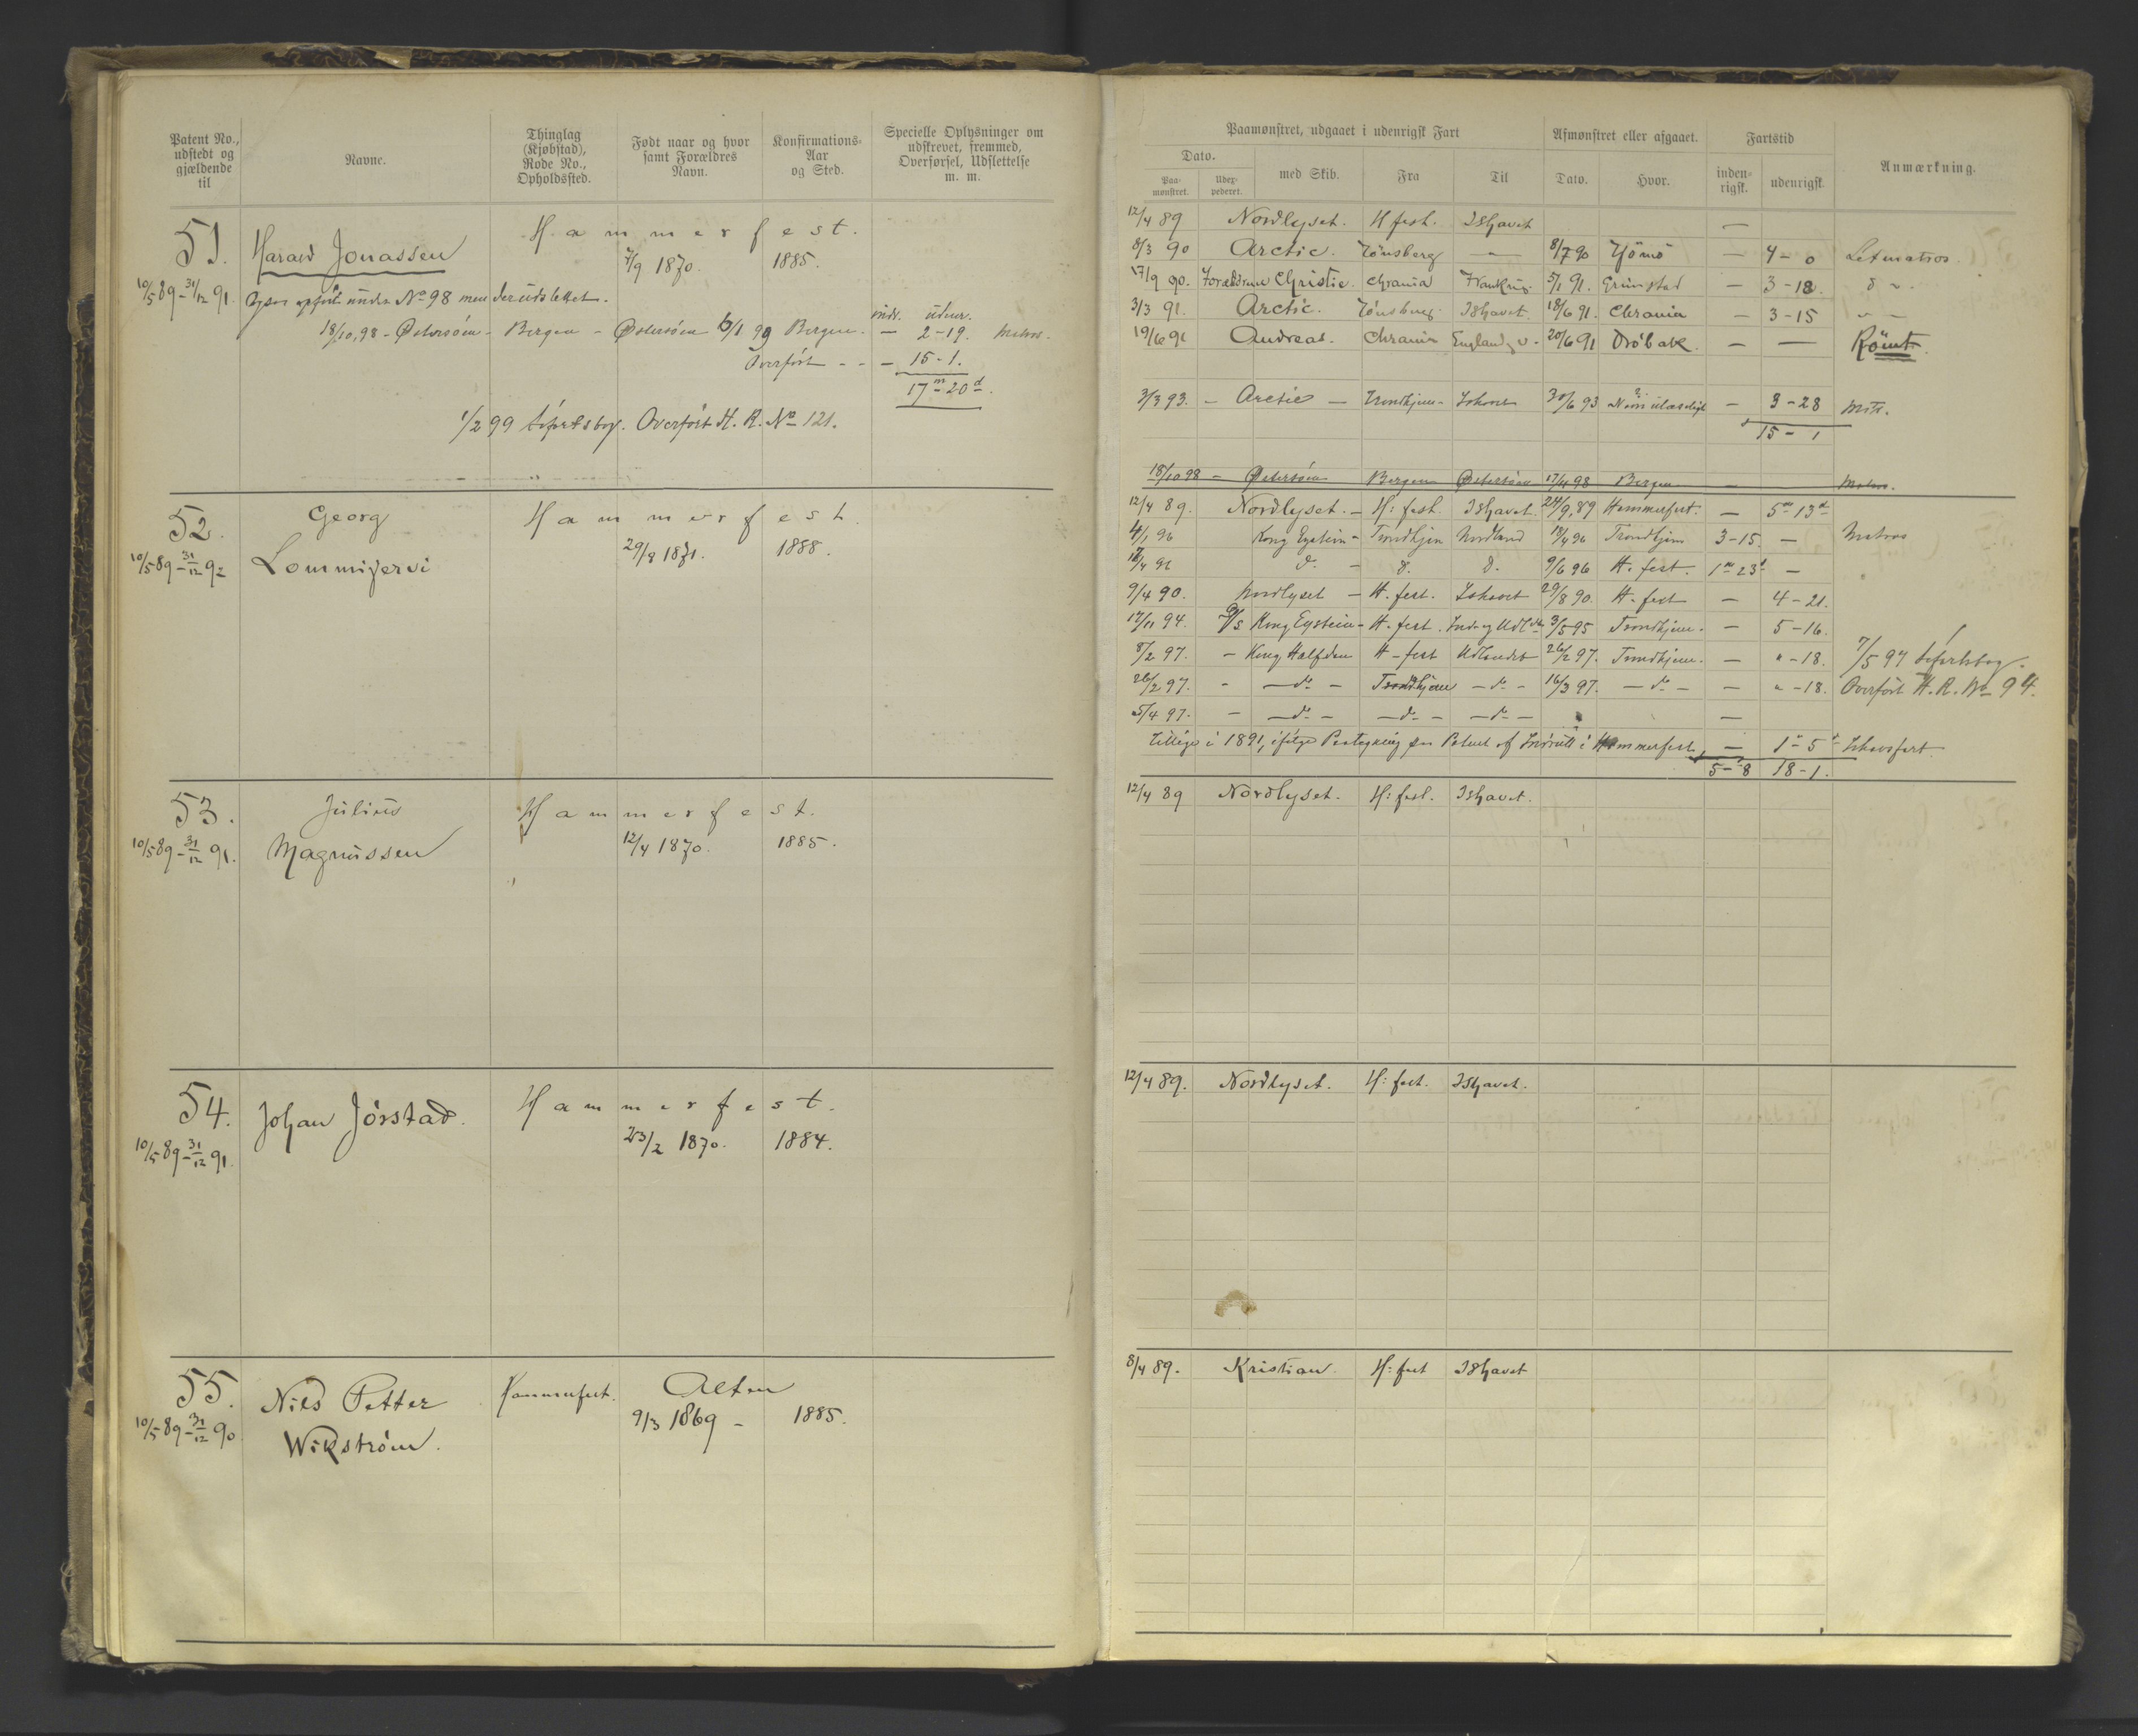 Patent No., udstedt og gjældende til
Navne.
Thinglag (Kjøbstad), Rode No., Opholdssted.
Født naar og hvor samt Forældres Navn.
Konfirmations-Aar og Sted.
Specielle Oplysninger om udskrevet, fremmed, Overførsel, Udslettelse m. m.
51.
10/5 89 - 31/12 91.
Harald Jonassen
Hammerfest.
7/9 1870.
1885.
Ogsaa opført under No 98 men der udslettet.
indr. udenr.
18/10,98 - Østersöen - Bergen - Østersöen 6/1 99 Bergen. - 2-19. Matros.
Overfört - - - 15-1.
17 m 20 d.
1/2 99 Söfartsbog. Overfört H. R. No 121.
52.
10/5 89 - 31/12 92
Georg
Lommijervi
Hammerfest
29/8 1871.
1888.
53.
10/5 89 - 31/12 91.
Julius
Magnussen
Hammerfest.
12/4 1870.
1885.
54.
10/5 89 - 31/12 91.
Johan Jörstad.
Hammerfest.
23/2 1870.
1884.
55.
10/5 89 - 31/12 90
Nils Petter
Wikström.
Hammerfest.
Alten
9/3 1869 -
1885.
Paamønstret, udgaaet i udenrigsk Fart
Afmønstret eller afgaaet.
Fartstid
Anmærkning.
Dato.
Paa-mønstret.
Udex-pederet.
med Skib.
Fra
Til
Dato.
Hvor.
inden-rigsk.
udenrigsk.
12/4 89 Nordlyset. H fest. Ishavet —
8/3 90 Arctic. Tönsberg — 8/7 90 Tjömö — 4-0 Letmatros
17/9 90. Christie. Chrania 5/1 91. Grimstad — 3-18. d
3/3 91. Arctic. Tönsberg. Ishavet. 18/6 91. Chrania — 3-15 " —
19/6 91 Andreas. Chrania England 20/6 91 Dröbak. — — Römt.
3/3 93. - Arctic — Trondhjem - Ishavet 30/6 93 Navn ulæseligt — 3-28 Mts.
15-1
18/10 98 - Østersöen Bergen Østersöen 17/11 98 Bergen — Matros.
12/4 89. Nordlyset. - H: fest. Ishavet. 24/9,89 Hammerfest. — 5 m 13 d
4/1 96 Kong Eystein - Trondhjem Nordland 18/4 96 Trondhjem 3-15. — Matros
18/4 96 do. - d. d. 9/6 96 H. fest. 1 m 23 d —
9/4 90. Nordlyset — H. fest. Ishavet 29/8 90. H. fest — 4-21.
17/11 94. D/S Kong Eystein - H. fest. Ind og Udldt 3/5 95 Trondhjem. — 5-16.
8/2 97. - Kong Halfdan H-fest Udlandet 26/2 97. Trondhjem. — " -18. 7/5 97 Söfartsbog.
26/2 97. - — do - Trondhjem - do - 16/3 97. — do — — " -18. Overfört H. R. No 94.
5/4 97. - — do - — do - — do — —
Tillige i 1891, ifölge Paategning paa Patent af Indrull. i Hammerfest, — 1 m 5 d Ishavsfart
5-8 18-1.
12/4 89 Nordlyset. H: fest. Ishavet.
12/4 89. Nordlyset. H: fest. Ishavet.
8/4 89. Kristian. H: fest Ishavet